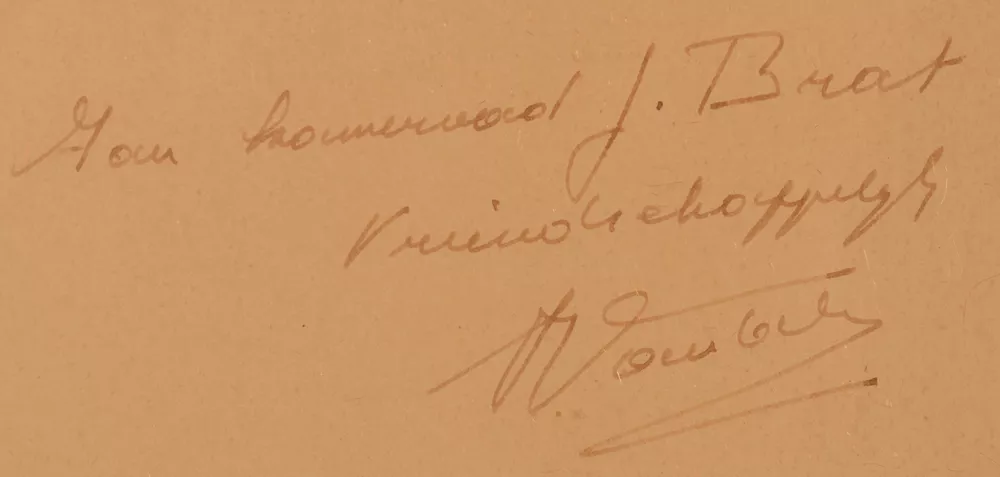 Aan kameraad J. Brat
Vriendschappelijk